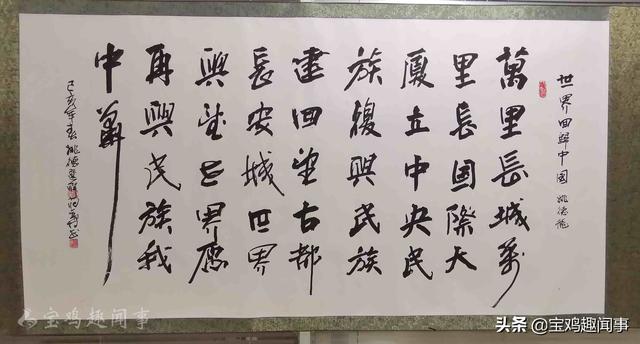 世界回歸中国 姚德龍
萬里長城萬
里長国際大
廈立中央民
族復興民族
建回望古都
長安城世界
興世界愿
再興民族我
中華
己亥年春姚德
宝鸡趣闻事
头条 @宝鸡趣闻事